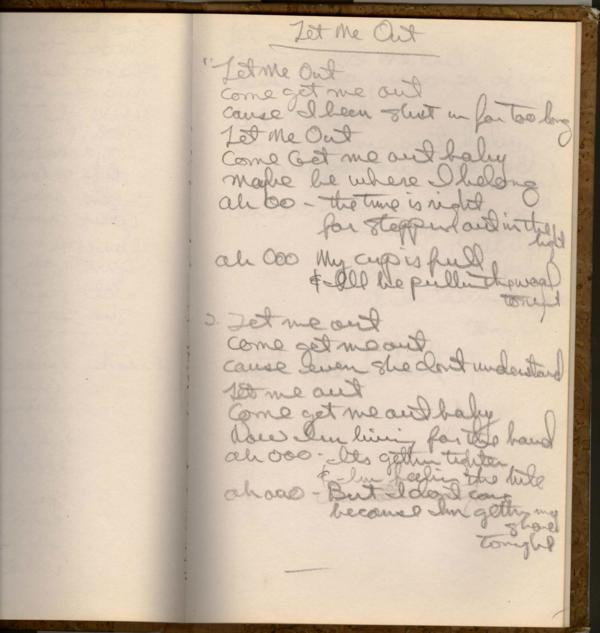 Let Me Out
"Let Me Out
Come get me out
Cause I been shut in far too long
Let Me Out
Come Get me out baby
maybe be where I belong
ah OO - the time is right
for steppin out in the
light
ah OOO My cup is full
& I'll be pullin the wool
tonight
2. Let me out
Come get me out
Cause even she don't understand
Let me out
Come get me out baby
Now I'm living for the band
ah OOO - Its gettin tighter
& I'm feelin the bite
ah ooo - But I don't care
because I'm gettin my
share
tonight